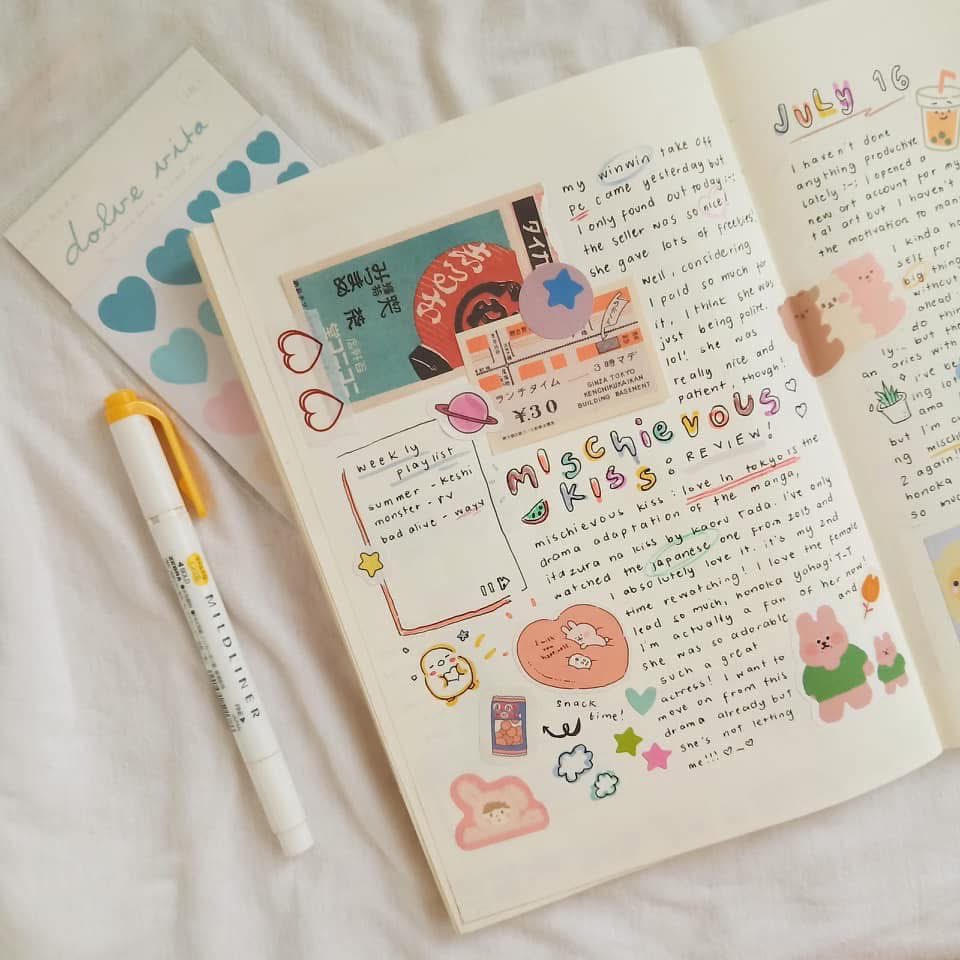 dolve vita
MILDLINER
my winwin take off
pc came yesterday but
I only found out today :-:
the seller was so nice!
she gave lots of freebies!
well, considering
I paid so much for
it, I think she was
just being polite.
lol! she was
really nice and
patient, though!
タイ
ランチタイム — 3時マデ
¥30
GINZA TOKYO
KENCHIKUKAIKAN
BUILDING BASEMENT
weekly
playlist
summer - keshi
monster - rv
bad alive - wayv
MISCHIEVOUS
KISS: REVIEW!
mischievous kiss: love in tokyo is the
drama adaptation of the manga,
itazura na kiss by kaoru tada. I've only
watched the japanese one from 2013 and
I absolutely love it. it's my 2nd
time rewatching! I love the female
lead so much, honoka yahagi T-T
I'm actually a fan of her now!
she was so adorable and
such a great
actress! I want to
move on from this
drama already but
she's not letting
me!!! ♡~♡
I wish
you
happiness.
snack
time!
JULY 16
I haven't done
anything productive
lately :-; I opened a
new art account for my
tal art but I haven't
the motivation to man
I kinda
self for
big thing
without
ahead
do thin
ly... but the
an aries with
I've be
ing lo
ama
but I'm cu
ng misch
2 again!!
honoka
so muc